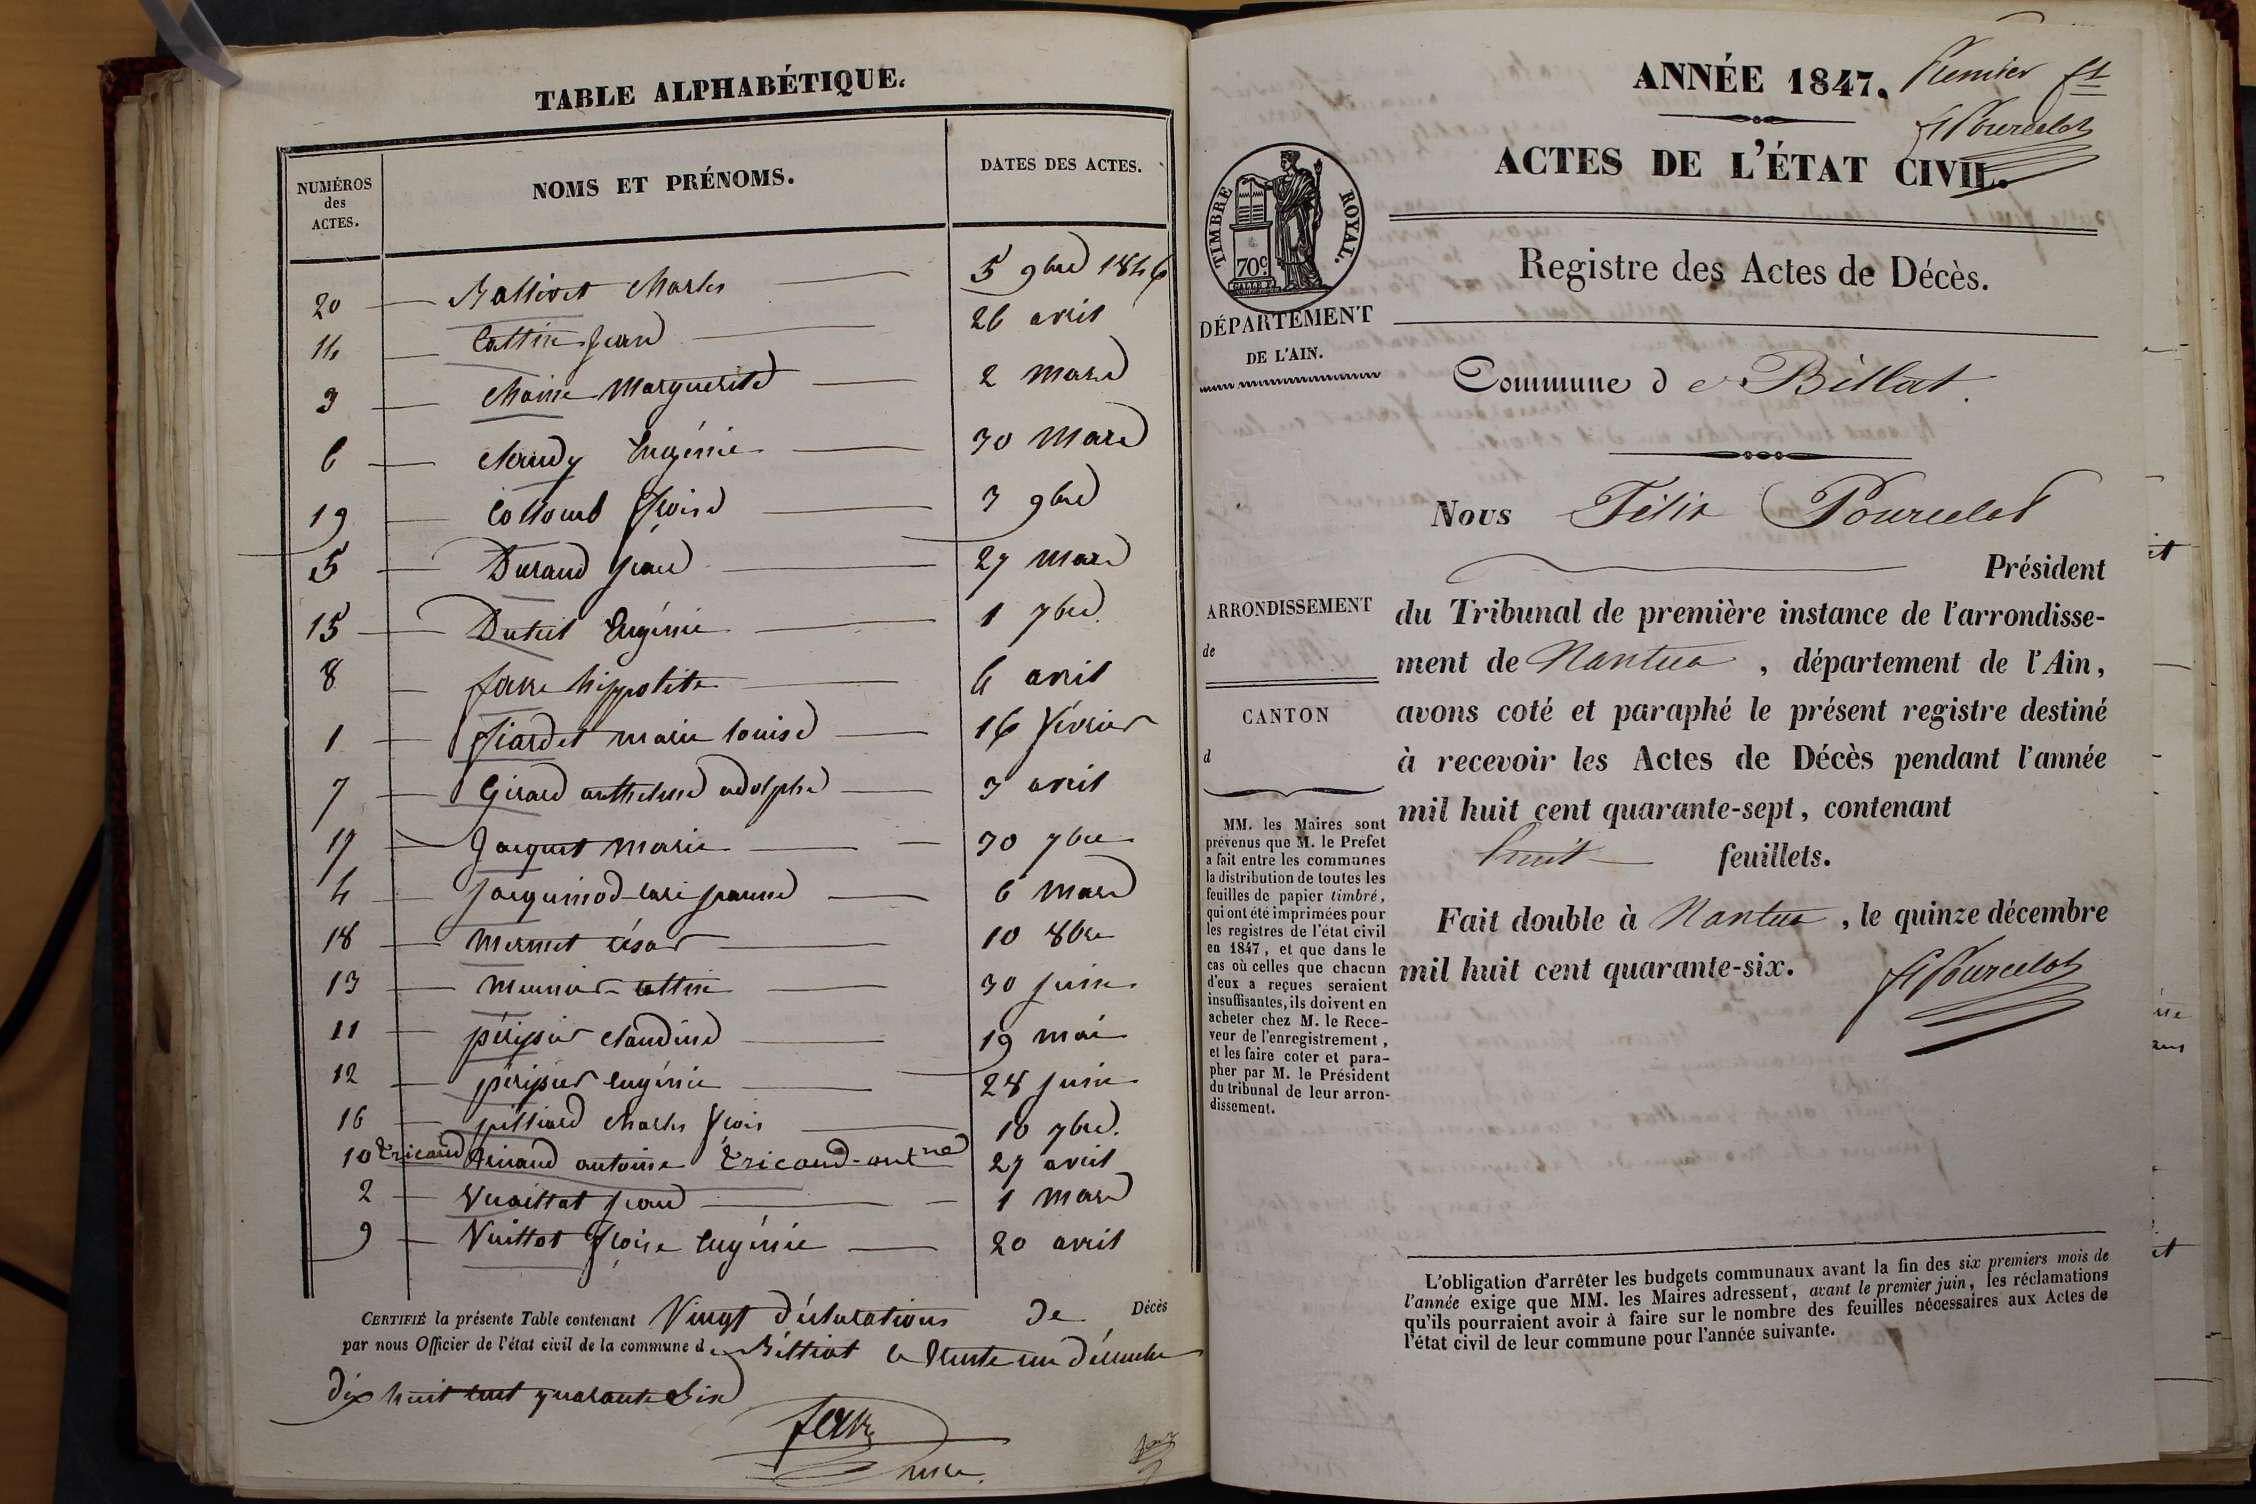 TABLE ALPHABÉTIQUE.
NUMÉROS des ACTES.
NOMS ET PRÉNOMS.
DATES DES ACTES.
20 Ballivet Charles 5 9bre 1846
14 Cattin Jean 26 avril
3 Chaine Marguerite 2 Mars
6 Eugénie 30 Mars
19 Collomb fçoise 3 9bre
5 Durand Jean 27 Mars
15 Eugénie 1 7bre
8 favre hippolite 6 avril
1 fiardet marie louise 16 février
7 Girard anthelme adolphe 3 avril
17 Jacquet Marie 30 7bre
4 Jacquinod 6 Mars
18 Mermet César 10 8bre
13 Meunier 30 juin
11 périsier claudine 19 mai
12 périsier eugénie 28 juin
16 pilliard charles fçois 10 7bre.
10 Tricaud antoine Tricaud-antne 27 avril
2 Vuaillat Jean 1 Mars
9 Vuillot fçoise Eugénie 20 avril
CERTIFIÉ la présente Table contenant Vingt déclarations de Décès
par nous Officier de l'état civil de la commune de Billiat le trente un décembre
dix huit cent quarante Six
favre
ANNÉE 1847.
Premier ft
ft Pourcelot
ACTES DE L'ÉTAT CIVIL.
TIMBRE ROYAL.
70c
Registre des Actes de Décès.
DÉPARTEMENT
DE L'AIN.
Commune de Billiat.
ARRONDISSEMENT
de
CANTON
d
MM. les Maires sont
prévenus que M. le Préfet
a fait entre les communes
la distribution de toutes les
feuilles de papier timbré,
qui ont été imprimées pour
les registres de l'état civil
en 1847, et que dans le
cas où celles que chacun
d'eux a reçues seraient
insuffisantes, ils doivent en
acheter chez M. le Rece-
veur de l'enregistrement,
et les faire coter et para-
pher par M. le Président
du tribunal de leur arron-
dissement.
Nous Félix Pourcelot
Président
du Tribunal de première instance de l'arrondisse-
ment de Nantua, département de l'Ain,
avons coté et paraphé le présent registre destiné
à recevoir les Actes de Décès pendant l'année
mil huit cent quarante-sept, contenant
huit feuillets.
Fait double à Nantua, le quinze décembre
mil huit cent quarante-six.
ft Pourcelot
L'obligation d'arrêter les budgets communaux avant la fin des six premiers mois de
l'année exige que MM. les Maires adressent, avant le premier juin, les réclamations
qu'ils pourraient avoir à faire sur le nombre des feuilles nécessaires aux Actes de
l'état civil de leur commune pour l'année suivante.